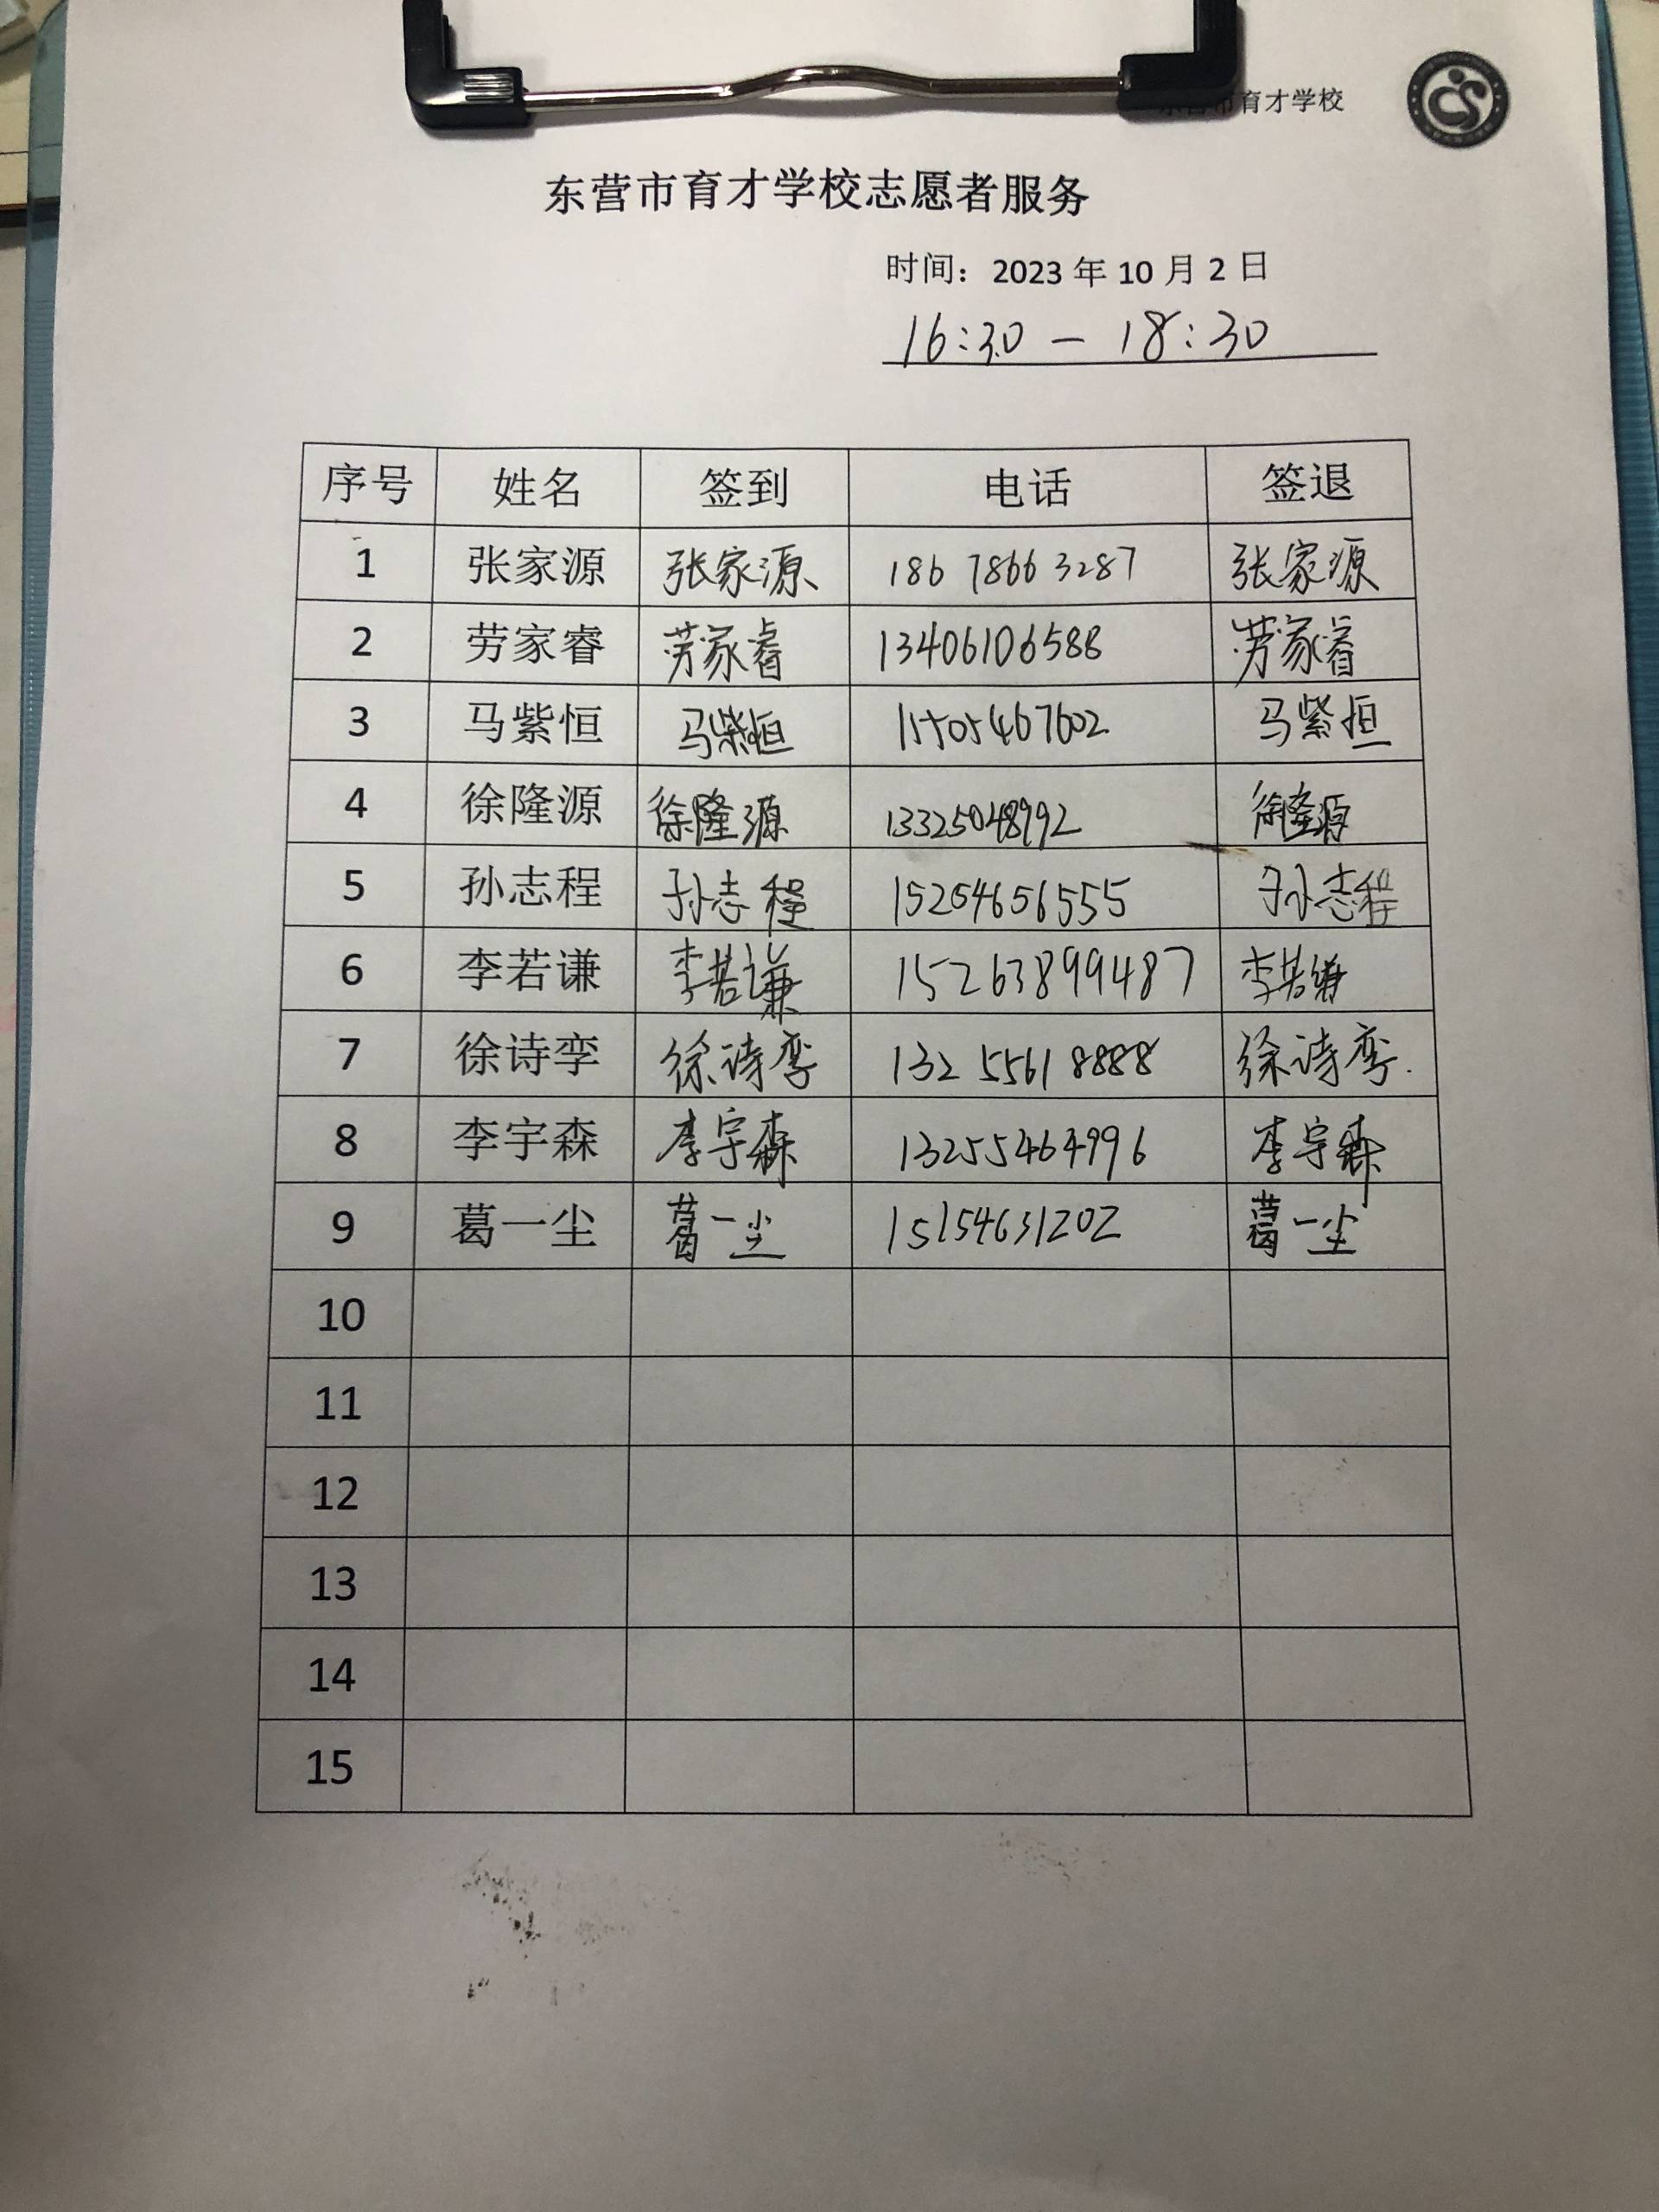 东营市育才学校
东营市育才学校志愿者服务
时间：2023 年 10 月 2 日
16:30 — 18:30
序号 姓名 签到 电话 签退
1 张家源 张家源 186 7866 3287 张家源
2 劳家睿 劳家睿 13406106588 劳家睿
3 马紫恒 马紫恒 15505467602 马紫恒
4 徐隆源 徐隆源 13325048992 徐隆源
5 孙志程 孙志程 15254656555 孙志程
6 李若谦 李若谦 15263899487 李若谦
7 徐诗孪 徐诗孪 132 5561 8888 徐诗孪.
8 李宇森 李宇森 13255464996 李宇森
9 葛一尘 葛一尘 15154631202 葛一尘
10
11
12
13
14
15